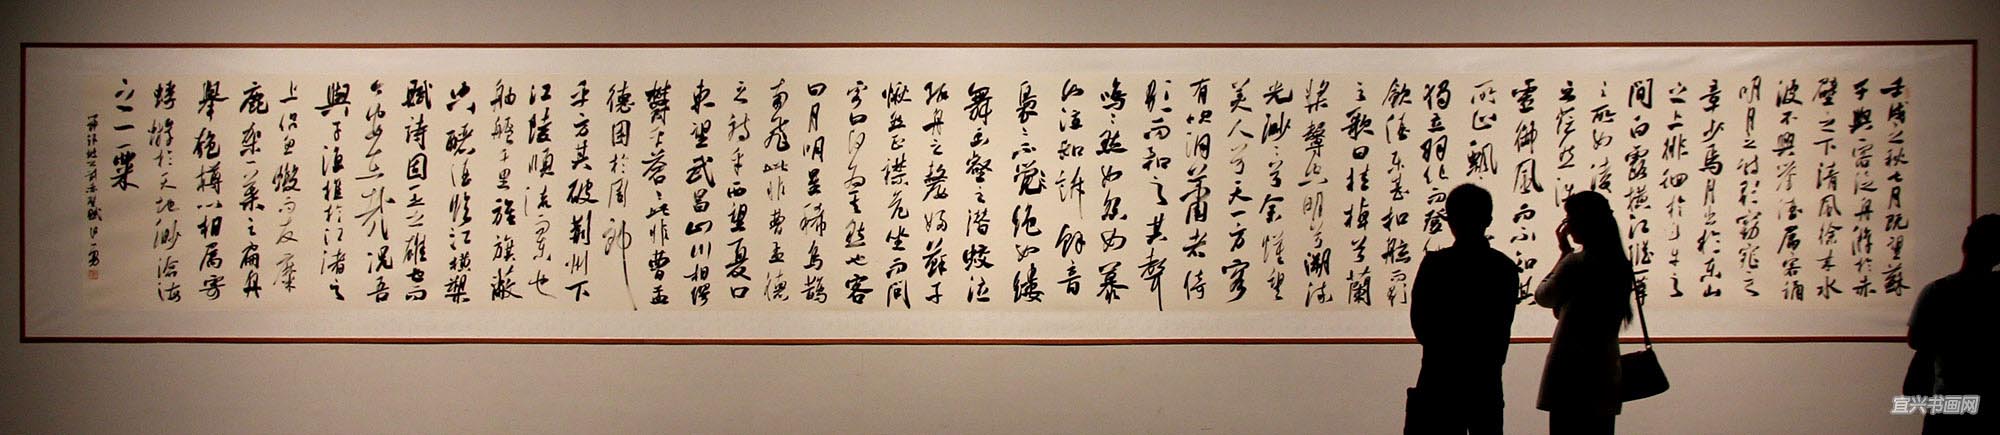 壬戌之秋七月既望蘇
子與客泛舟游於赤
壁之下清風徐來水
波不興舉酒屬客誦
明月之詩歌窈窕之
章少焉月出於東山
之上徘徊於斗牛之
間白露橫江縱一葦
之所如凌
之茫然浩
靈御風而不知其
所止飄
獨立羽化而登
飲酒樂甚扣舷而歌
之歌曰桂棹兮蘭
槳擊空明兮溯流
光渺渺兮余懷望
美人兮天一方客
有吹洞簫者倚
歌而和之其聲
嗚嗚然如怨如慕
如泣如訴餘音
裊裊不絕如縷
舞幽壑之潛蛟泣
孤舟之嫠婦蘇子
愀然正襟危坐而問
客曰何為其然也客
曰月明星稀烏鵲
南飛此非曹孟德
之詩乎西望夏口
東望武昌山川相繆
鬱乎蒼蒼此非曹孟
德困於周郎
乎方其破荊州下
江陵順流而東也
舳艫千里旌旗蔽
空釃酒臨江橫槊
賦詩固一世之雄也而
今安在哉況吾
與子漁樵於江渚之
上侶魚蝦而友麋
鹿駕一葉之扁舟
舉匏樽以相屬寄
蜉蝣於天地渺滄海
之一一粟
宜兴书画网